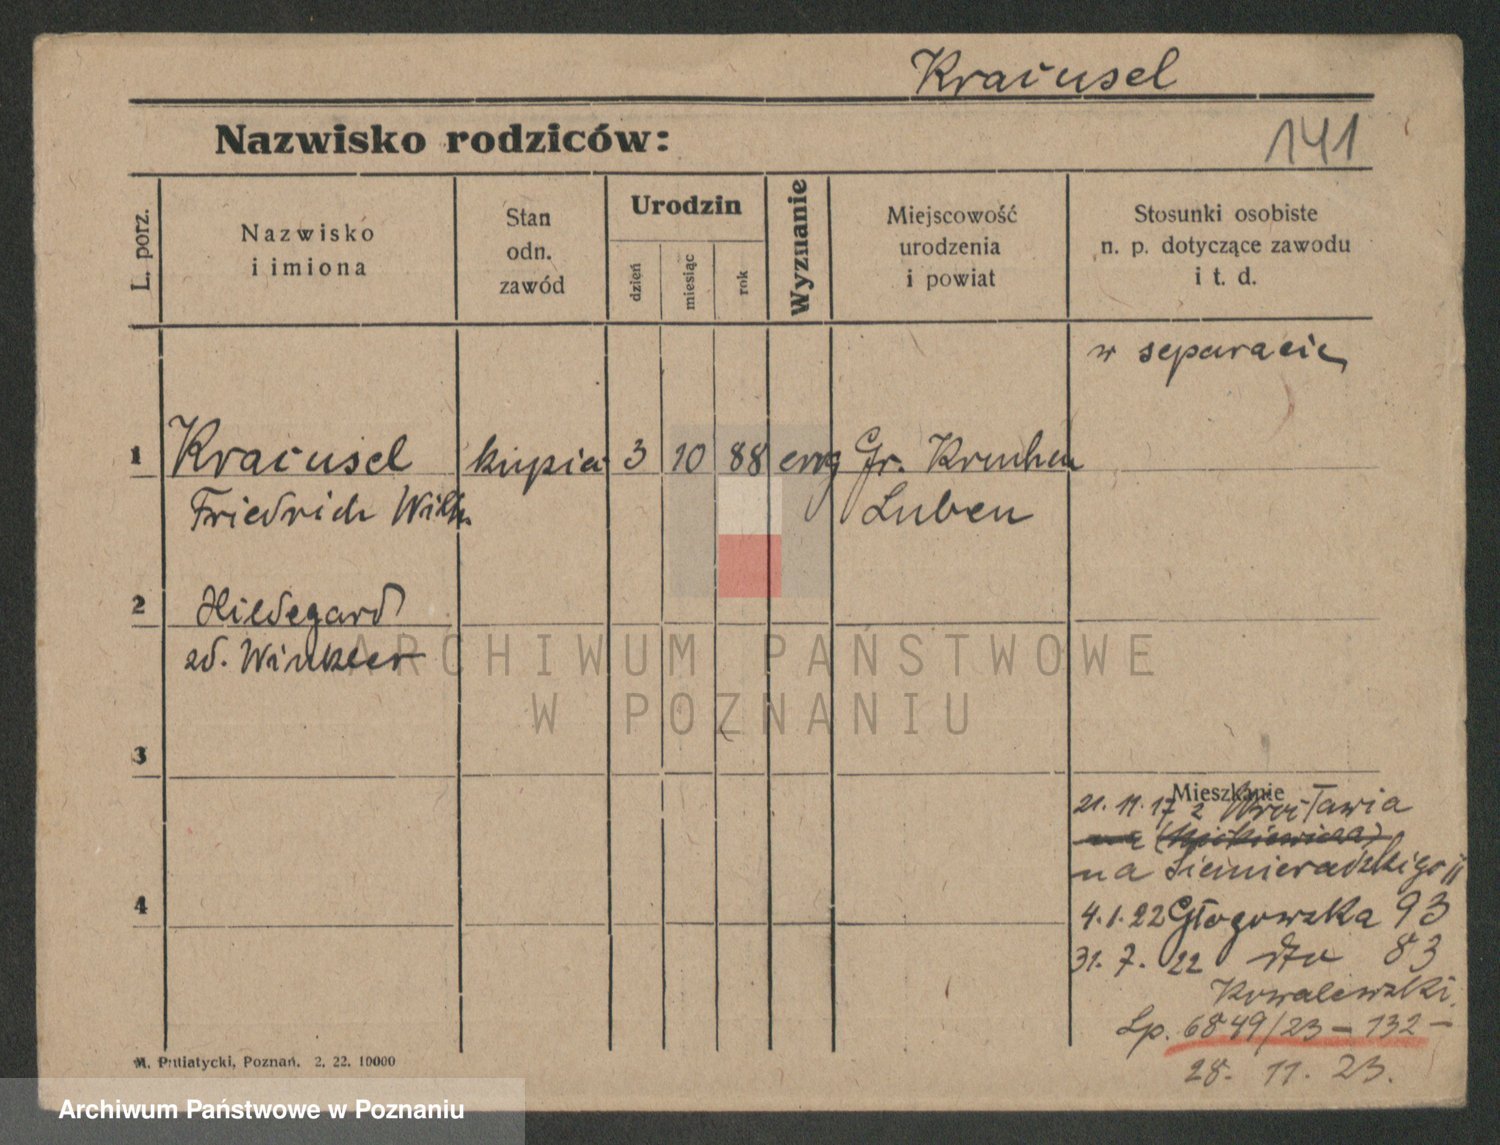 Kraiusel
Nazwisko rodziców:
141
L. porz.
Nazwisko
i imiona
Stan
odn.
zawód
Urodzin
dzień
miesiąc
rok
Wyznanie
Miejscowość
urodzenia
i powiat
Stosunki osobiste
n. p. dotyczące zawodu
i t. d.
w separacie
1 Kraiusel 3 10 88 ewg Gr. Kruchen
Friedrich Wilh. Luben
2 Hildegard
zd. Winkler
ARCHIWUM PAŃSTWOWE
W POZNANIU
3
Mieszkanie
21. 11. 17 z Wrocławia
na
na Siemieradzkiego 11
4
4. 1. 22 Głogowska 93
31. 7. 22 dto 83
Kowalewski.
Lp. 6849/23 - 132 -
28. 11. 23.
M. Putiatycki, Poznań. 2. 22. 10000
Archiwum Państwowe w Poznaniu